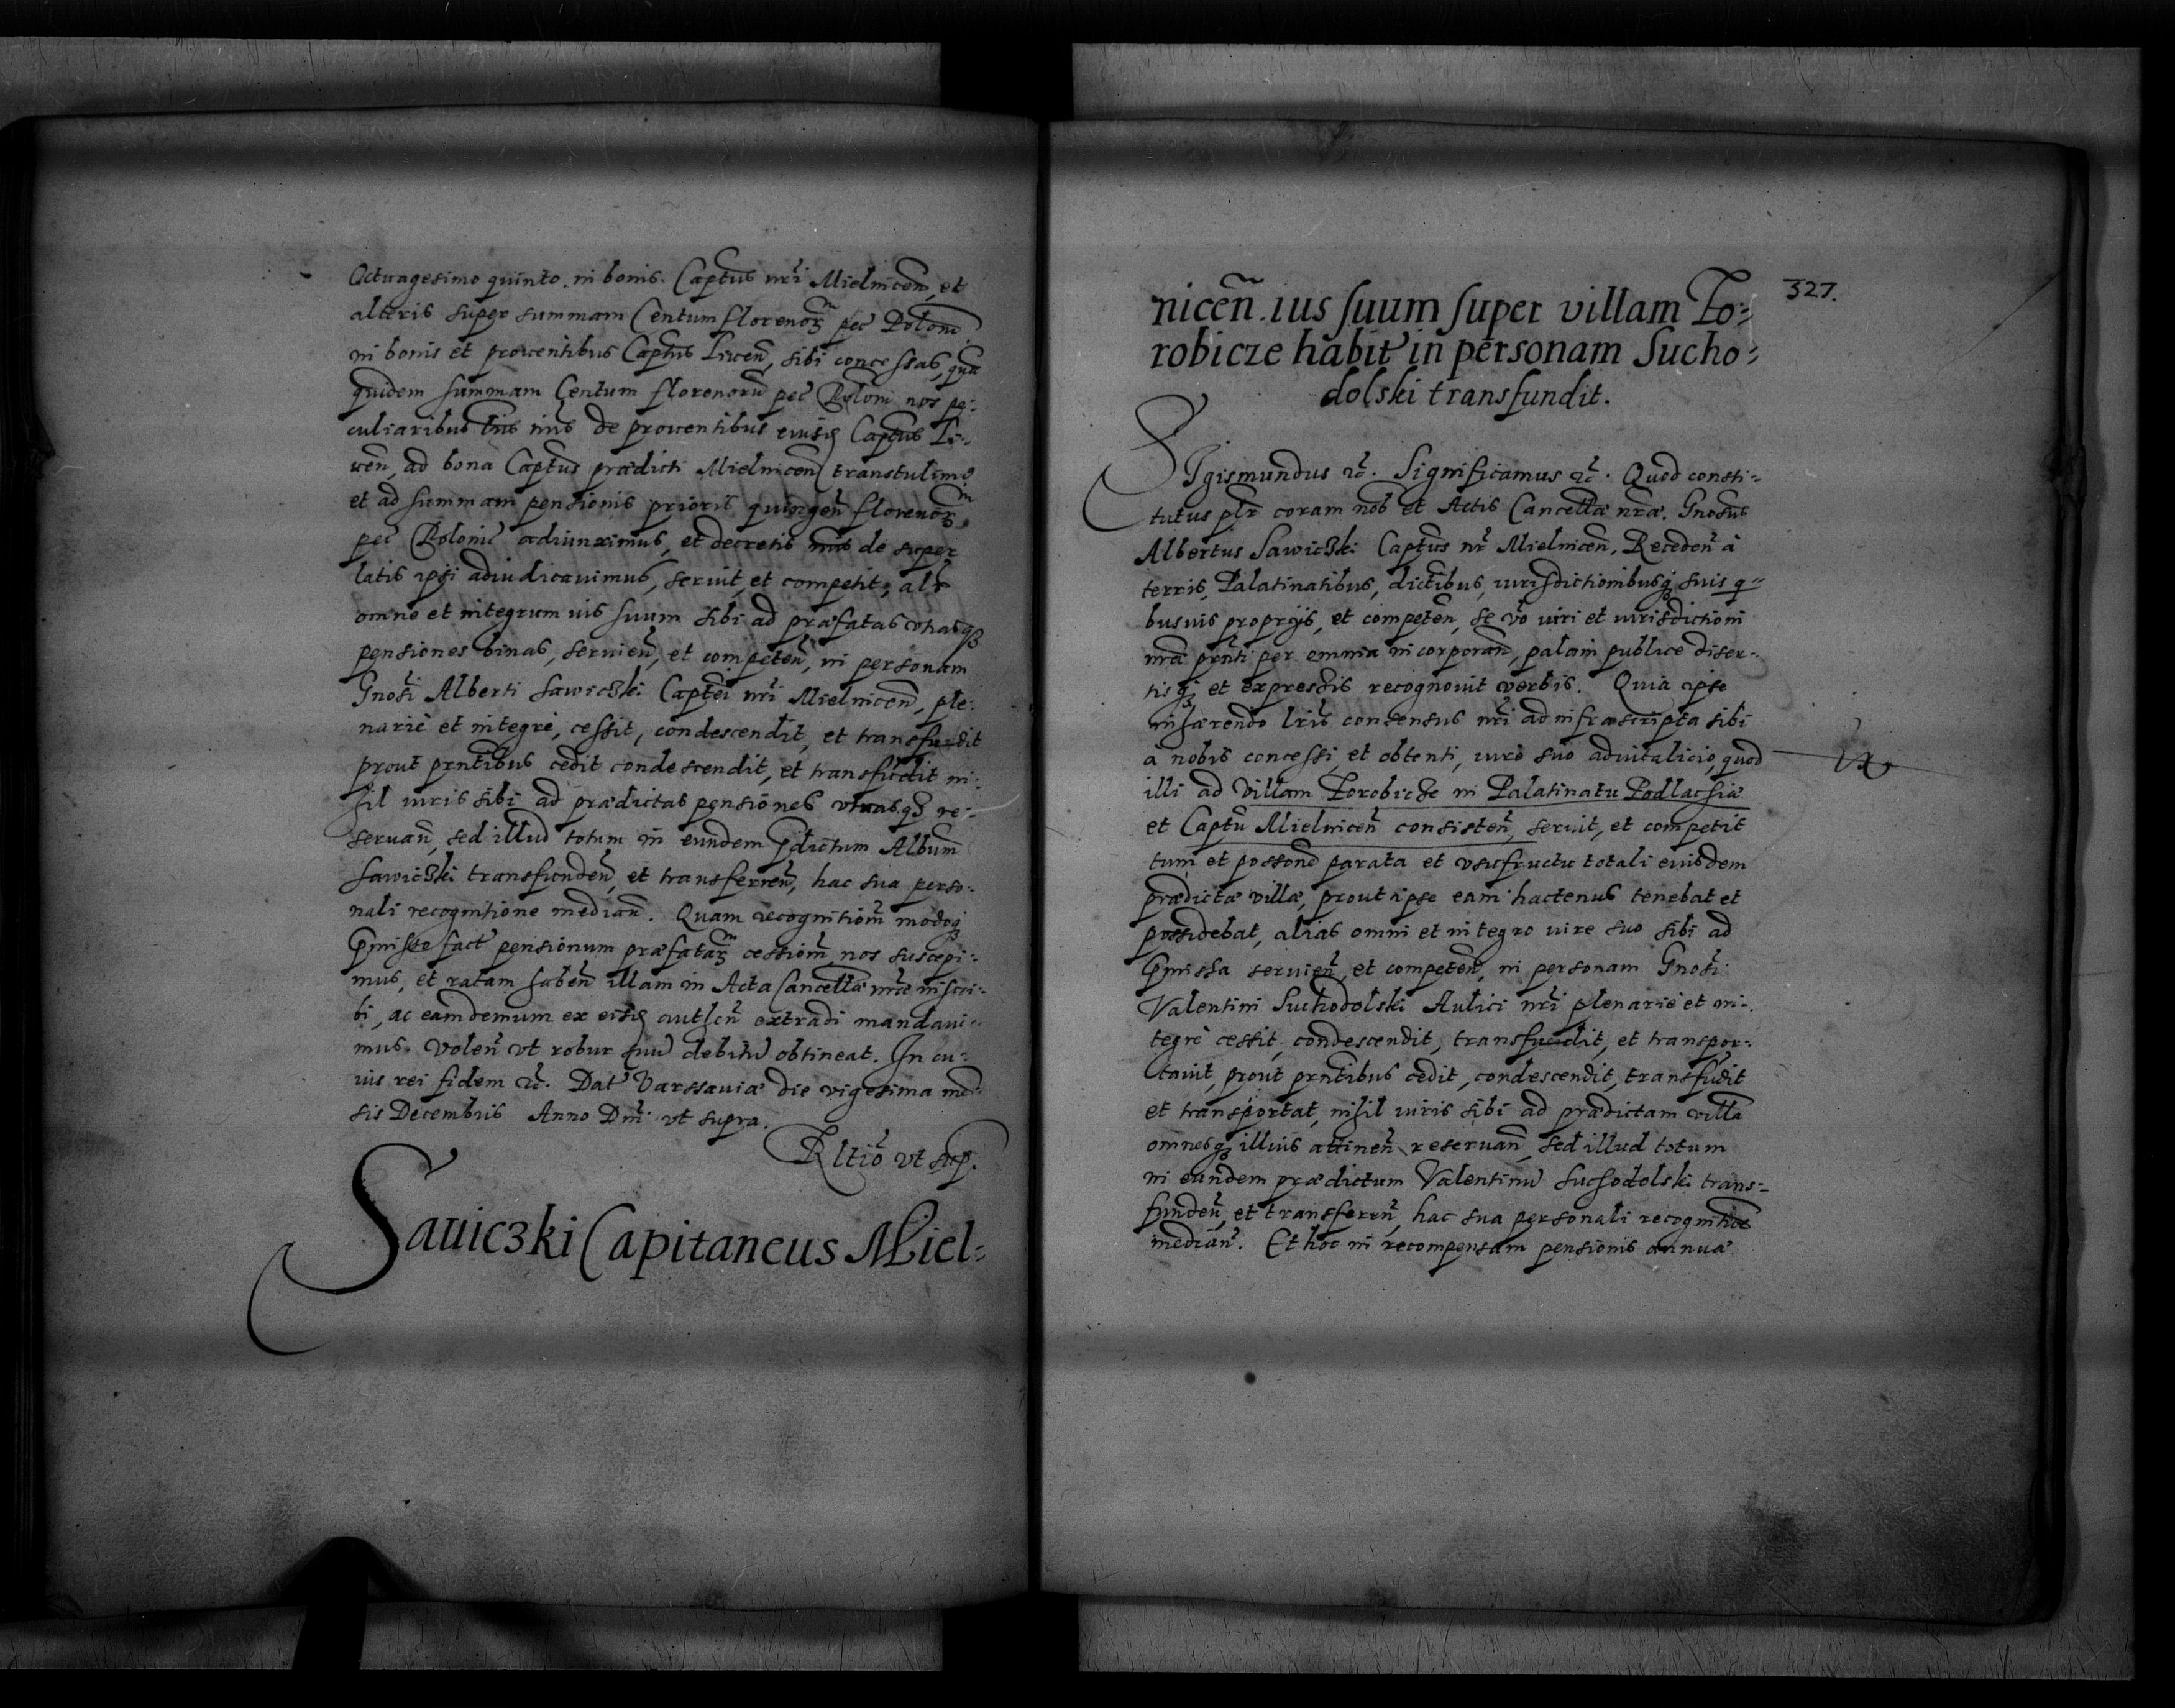 Octuagesimo quinto. in bonis. Captus nri Mielnicen, et
alteris super summam Centum florenor pec Polonic
in bonis et prouentibus Captus Liucen, sibi concessas, qua
quidem summam Centum florenoru pec Polon nos pe-
culiaribus lris nris de prouentibus eiusd Captus Li-
ucen, ad bona Captus prædicti Mielnicen transtulimo
et ad summam pensionis prioris quingen florenor
pec Polonic adiunximus, et decretis nris de super
latis ipsi adiudicauimus, seruit, et competit, als
omne et integrum ius suum sibi ad præfatas vtrasq
pensiones binas, seruien, et competen, in personam
Gnosi Alberti Sawiczki Captei nri Mielnicen, ple-
nariè et integrè, cessit, condescendit, et transfudit
prout prntibus cedit condescendit, et transfudit ni-
hil iuris sibi ad prædictas pensiones vtrasq re-
seruan, sed illud totum in eundem pdictum Album
Sawiczki transfunden, et transferren, hac sua perso-
nali recognitione median. Quam recognitiom modoq
pmisso fact pensionum præfatar cessiom, nos suscepi-
mus, et ratam haben illam in Acta Cancellæ nræ inscri-
bi, ac eamdemum ex eisd authen extradi mandaui-
mus. Volen vt robur suu debitu obtineat. In cu-
ius rei fidem etc. Dat Varssauiæ die vigesima men-
sis Decembris Anno Dni vt supra.
Rltio vt sup.
Sauiczki Capitaneus Miel-
327.
nicen. ius suum super villam To-
robicze habit in personam Sucho-
dolski transfundit.
SIgismundus etc. Significamus etc. Quod consti-
tutus plr coram nob et Actis Cancellæ nræ. Gnosus
Albertus Sawiczki Captus nr Mielnicen, Receden à
terris, Palatinatibus, dictibus, iurisdictionibusq suis q-
busuis proprijs, et competen, se vo iuri et iurisdictioni
nræ prnti per omnia incorporan, palam publice diser-
tisq et expressis recognouit verbis. Quia ipse
inhærendo lris consensus nri ad infrascripta sibi
à nobis concessi et obtenti, iure suo aduitalicio, quod
illi ad Villam Torobicze in Palatinatu Podlachiæ
et Captu Mielnicen consisten, seruit, et competit
tum et possone parata et vsufructu totali eiusdem
prædictæ villæ, prout ipse eam hactenus tenebat et
possidebat, alias omni et integro iure suo sibi ad
pmissa seruien, et competen, in personam Gnosi
Valentini Suchodolski Aulici nri plenariè et in-
tegrè cessit, condescendit, transfudit, et transpor-
tauit, prout prntibus cedit, condescendit, transfudit
et transportat, nihil iuris sibi ad prædictam villa
omnesq illius attinen reseruan, sed illud totum
in eundem prædictum Valentinu Suchodolski trans-
funden, et transferen, hac sua personali recognitioe
median. Et hoc in recompensam pensionis annuæ